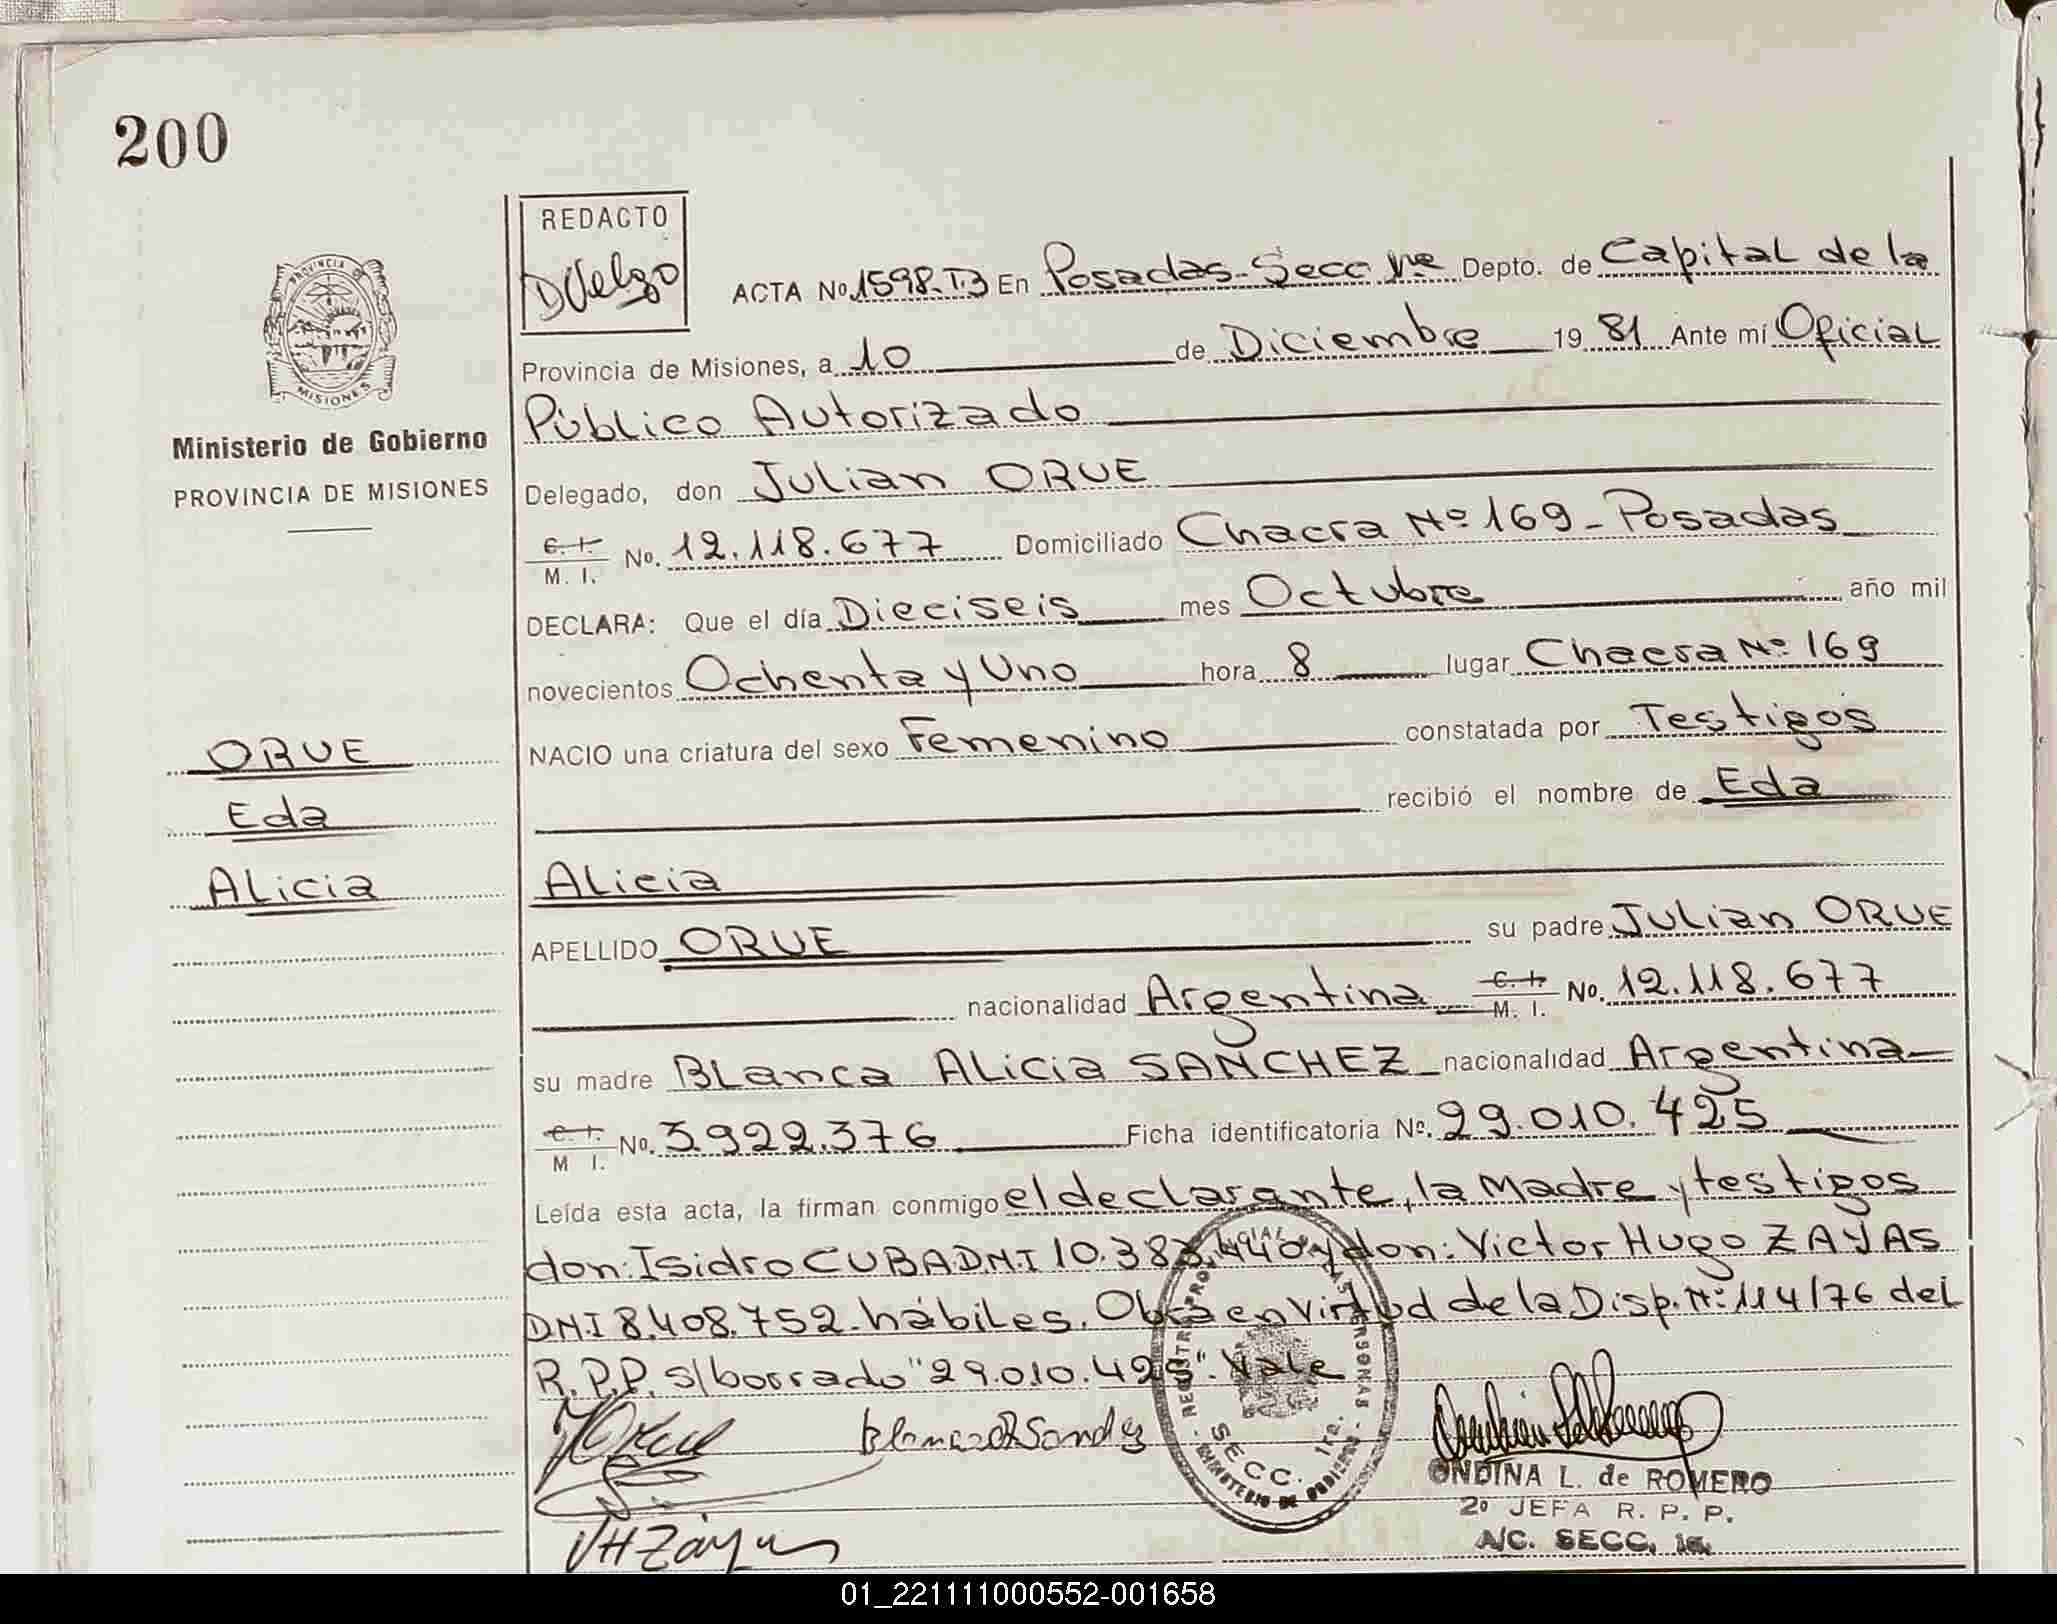 200
REDACTO
DVelzo
PROVINCIA DE
MISIONES
Ministerio de Gobierno
PROVINCIA DE MISIONES
ACTA No 1598.T.3 En Posadas-Secc 1ra Depto. de Capital de la
Provincia de Misiones, a 10 de Diciembre 19 81 Ante mí Oficial
Público Autorizado
Delegado, don Julian ORUE
C. I. M. I. No. 12.118.677 Domiciliado Chacra Nº 169-Posadas
DECLARA: Que el día Dieciseis mes Octubre año mil
novecientos Ochenta y Uno hora 8 lugar Chacra Nº 169
NACIO una criatura del sexo Femenino constatada por Testigos
recibió el nombre de Eda
Alicia
ORUE
Eda
Alicia
APELLIDO ORUE su padre Julian ORUE
nacionalidad Argentina C. I. M. I. No. 12.118.677
su madre Blanca Alicia SANCHEZ nacionalidad Argentina
C. I. M I. No. 3.922.376 Ficha identificatoria No. 29.010.425
Leída esta acta, la firman conmigo el declarante, la madre y testigos
don: Isidro CUBA D.N.I 10.383.440 y don: Victor Hugo ZAYAS
D.N.I 8.408.752. hábiles. Obra en virtud de la Disp. Nº 114/76 del
R.P.P. s/borrado "29.010.425". Vale
JOrue
Blanca A Sanchez
VHZáyas
SECC. 1ra.
MINISTERIO DE GOBIERNO
ONDINA L. de ROMERO
2º JEFA R. P. P.
A/C. SECC. 1a.
01_221111000552-001658